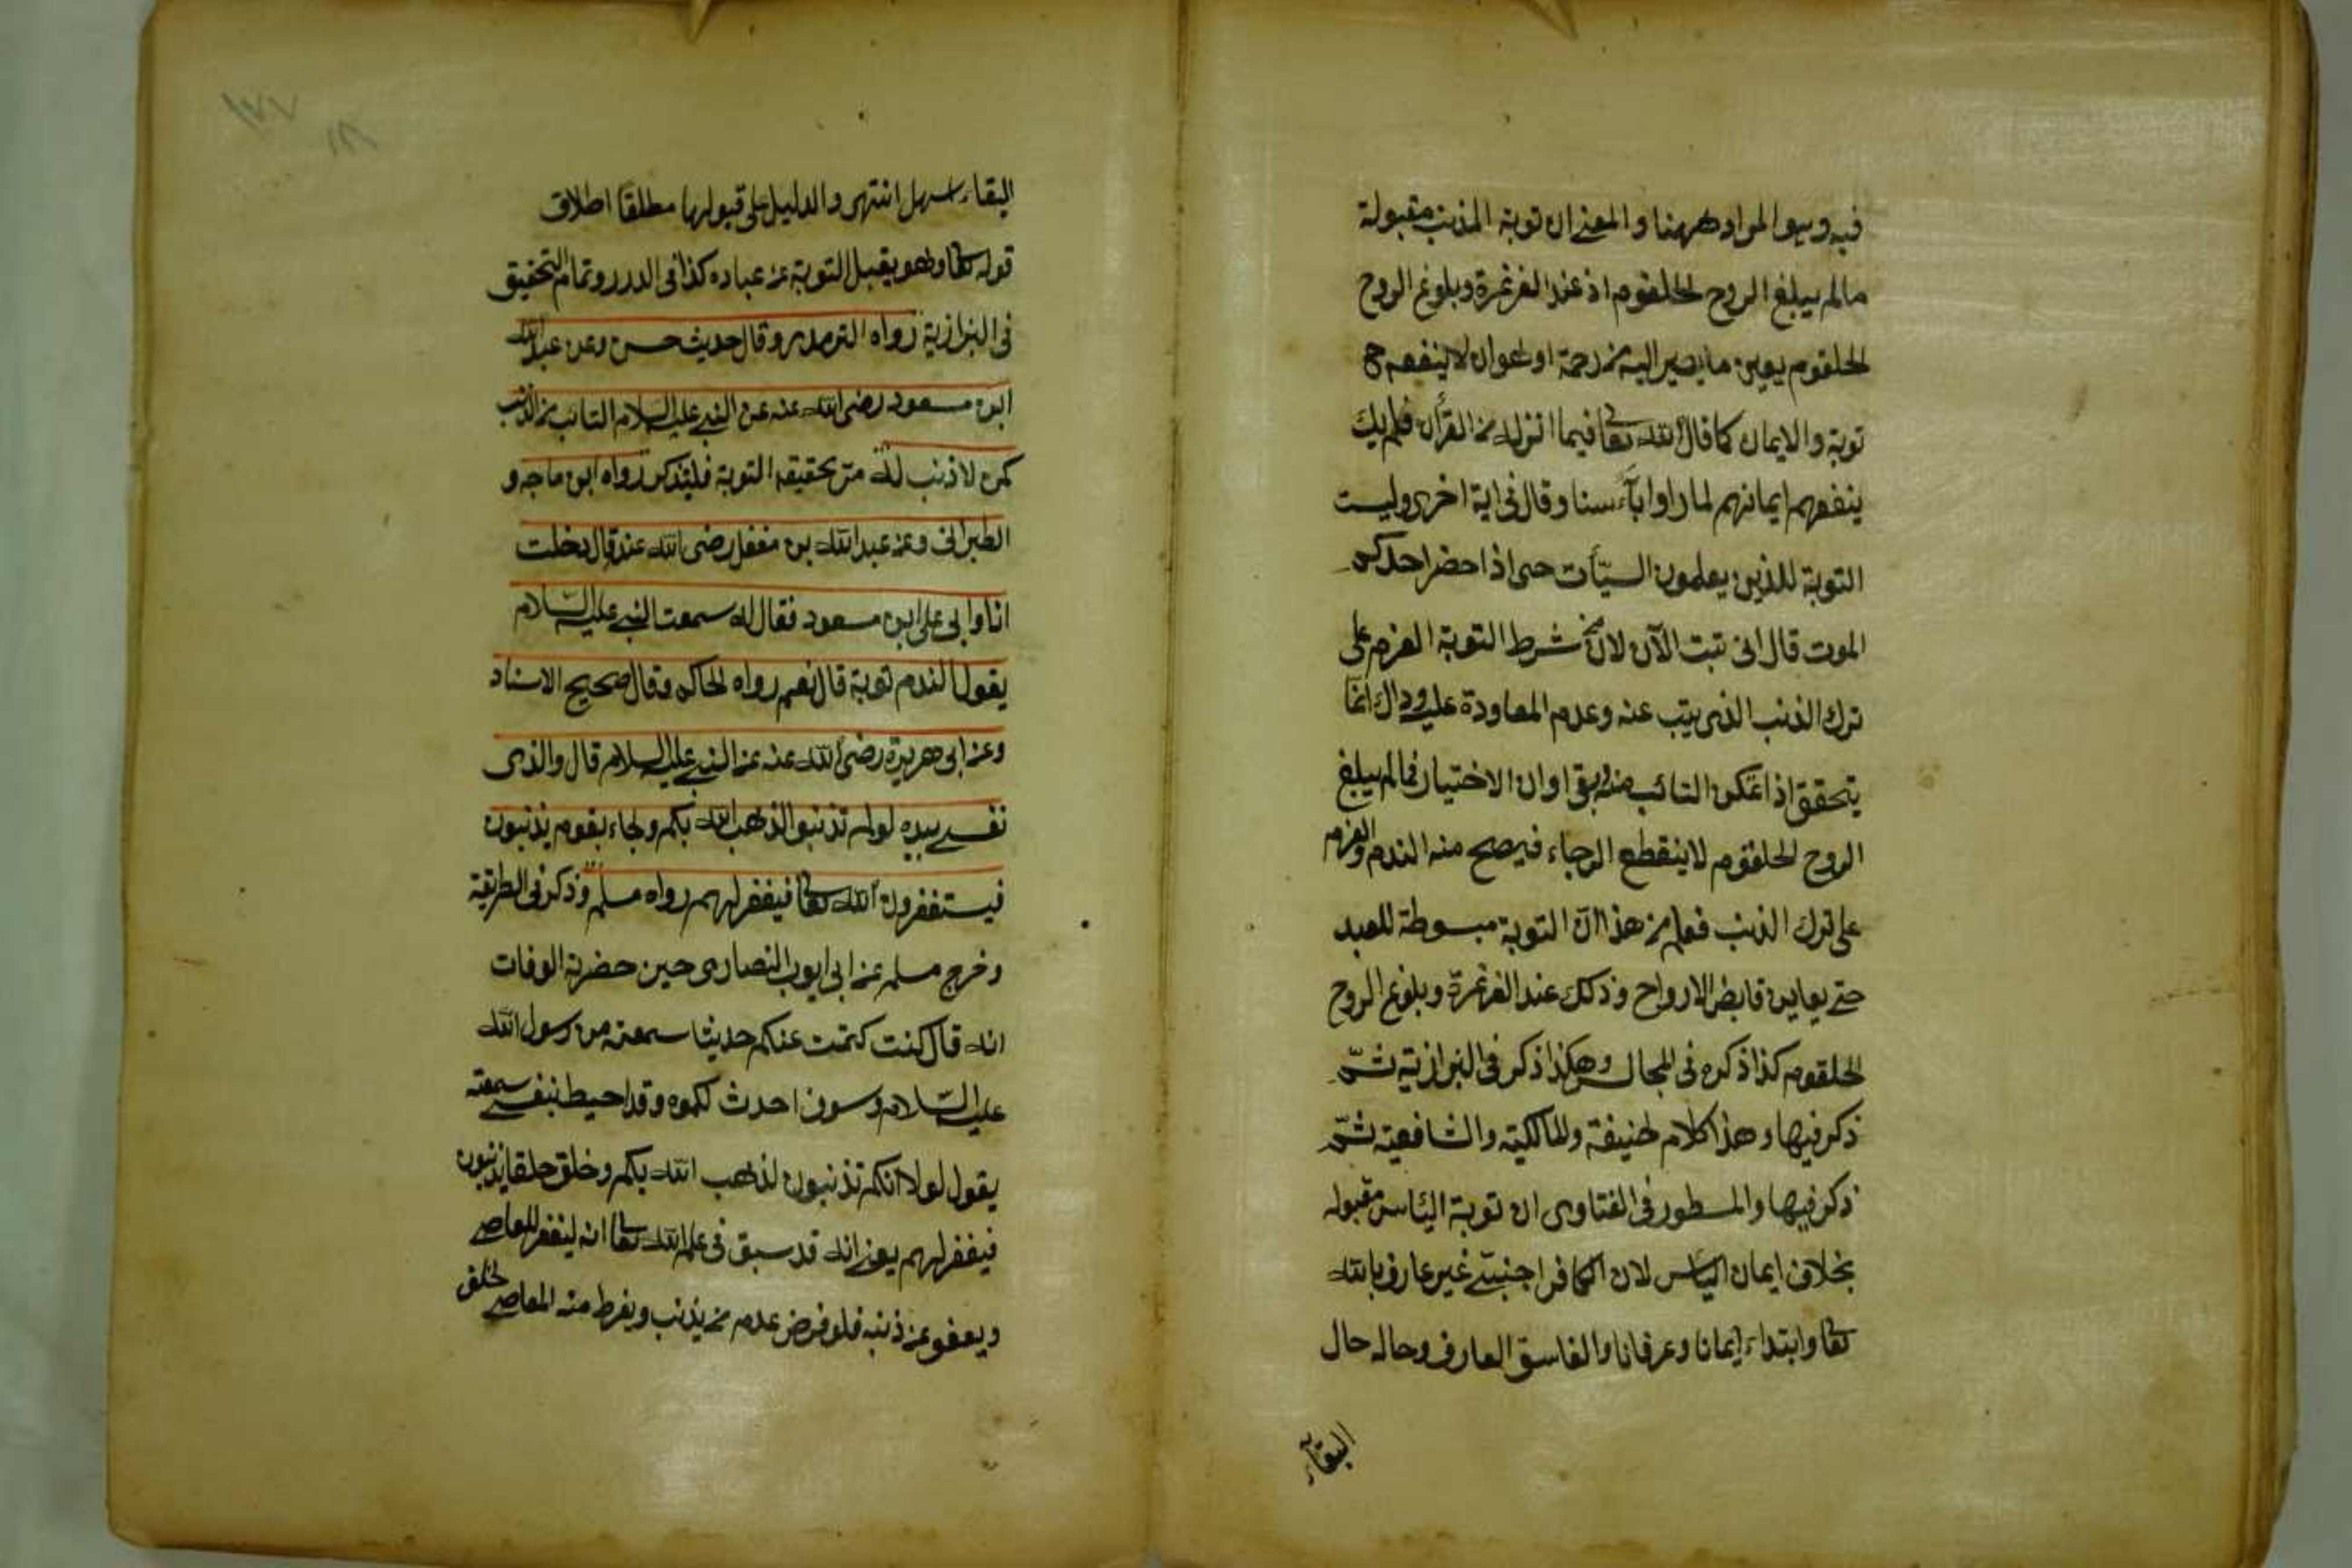 فيه وهو المراد ههنا والمعنى ان توبة المذنب مقبولة
مالم يبلغ الروح الحلقوم اذ عند الغرغرة وبلوغ الروح
الحلقوم يعين ما يصير اليه من رحمة او هوان لا ينفعه ح
توبة والايمان كما قال الله تعا فيما انزله من القرأن فلم يك
ينفعهم ايمانهم لما راوا بأسنا وقال فى اية اخرى وليست
التوبة للذين يعلمون السيّأت حتى اذا حضر احدكم
الموت قال انى تبت الآن لان من شرط التوبة العزم على
ترك الذنب الذى يتب عنه وعدم المعاودة عليه وذاك انما
يتحقق اذا تمكن التائب منه وبقى اوان الاختيار فما لم يبلغ
الروح الحلقوم لا ينقطع الرجاء فيصح منه الندم والعزم
على ترك الذنب فعلم من هذا ان التوبة مبسوطة للعبد
حتى يعاين قابض الارواح وذلك عند الغرغرة وبلوغ الروح
الحلقوم كذا ذكره فى المجالس وهكذا ذكر فى البزازية ثمّ
ذكر فيها وهذا كلام لحنيفة والمالكية والشافعية ثمّ
ذكر فيها والمسطور فى الفتاوى ان توبة اليأس مقبوله
بخلاف ايمان اليأس لان الكافر اجنبىّ غير عارف بالله
تعا وابتداء ايمانا وعرفانا والفاسق العارف وحاله حال
البقاء
البقاء اسهل انتهى والدليل على قبولها مطلقا اطلاق
قوله تعا وهو يقبل التوبة عن عباده كذا فى الدرر وتمام التحقيق
فى البزازية رواه الترمدى وقال حديث حسن وعن عبد الله
ابن مسعود رضى الله عنه عن النبى عليه السلام التائب من الذنب
كمن لا ذنب له مرّ تحقيقه التوبة فليتذكر رواه ابن ماجه و
الطبرانى وعن عبد الله بن مغفل رضى الله عنه قال دخلت
انا وابى على ابن مسعود فقال له سمعت النبى عليه السّلام
يقول الندم توبة قال نعم رواه الحاكم وقال صحيح الاسناد
وعن ابى هريرة رضى الله عنه عن النبى عليه السلام قال والذى
نفسى بيده لو لم تذنبوا لذهب الله بكم ولجاء بقوم يذنبون
فيستغفرون الله تعا فيغفر لهم رواه مسلم وذكر فى الطريقة
وخرج مسلم عن ابى ايوب النصارى حين حضرته الوفات
انه قال كنت كتمت عنكم حديثا سمعته من رسول الله
عليه السّلام وسوف احدث لكموه وقد احيط بنفسى سمعته
يقول لولا انكم تذنبون لذهب الله بكم وخلق خلقا يذنبون
فيغفر لهم يعنى انه قد سبق فى علم الله تعا انه ليغفر للعاصى
ويعفو عن ذنبه فلو فرض عدم من يذنب ويفرط منه المعاصى لخلق